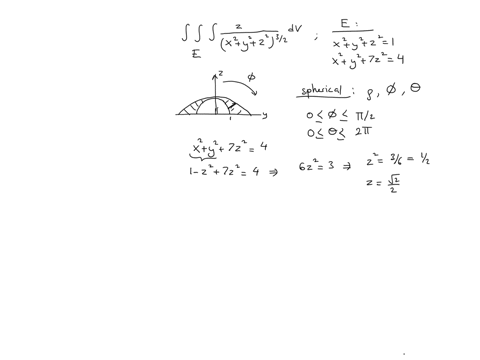 ∫ ∫ ∫_E z/(x²+y²+z²)^(3/2) dV ;
E:
x²+y²+z²=1
x²+y²+7z²=4
z
φ
y
1
spherical : ρ, φ, θ
0 ≤ φ ≤ π/2
0 ≤ θ ≤ 2π
x²+y²+7z² = 4
1-z²+7z² = 4 ⇒ 6z² = 3 ⇒ z² = 3/6 = 1/2
z = √2/2